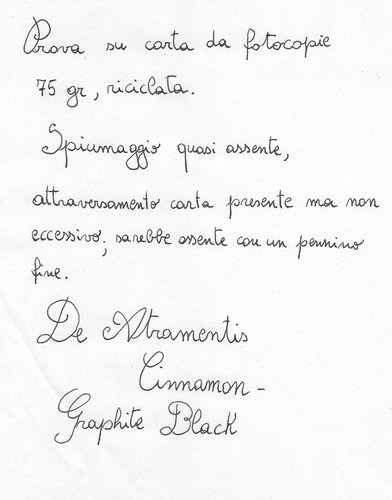 Prova su carta da fotocopie
75 gr, riciclata.
Spiumaggio quasi assente,
attraversamento carta presente ma non
eccessivo, sarebbe assente con un pennino
fine.
De Atramentis
Cinnamon -
Graphite Black